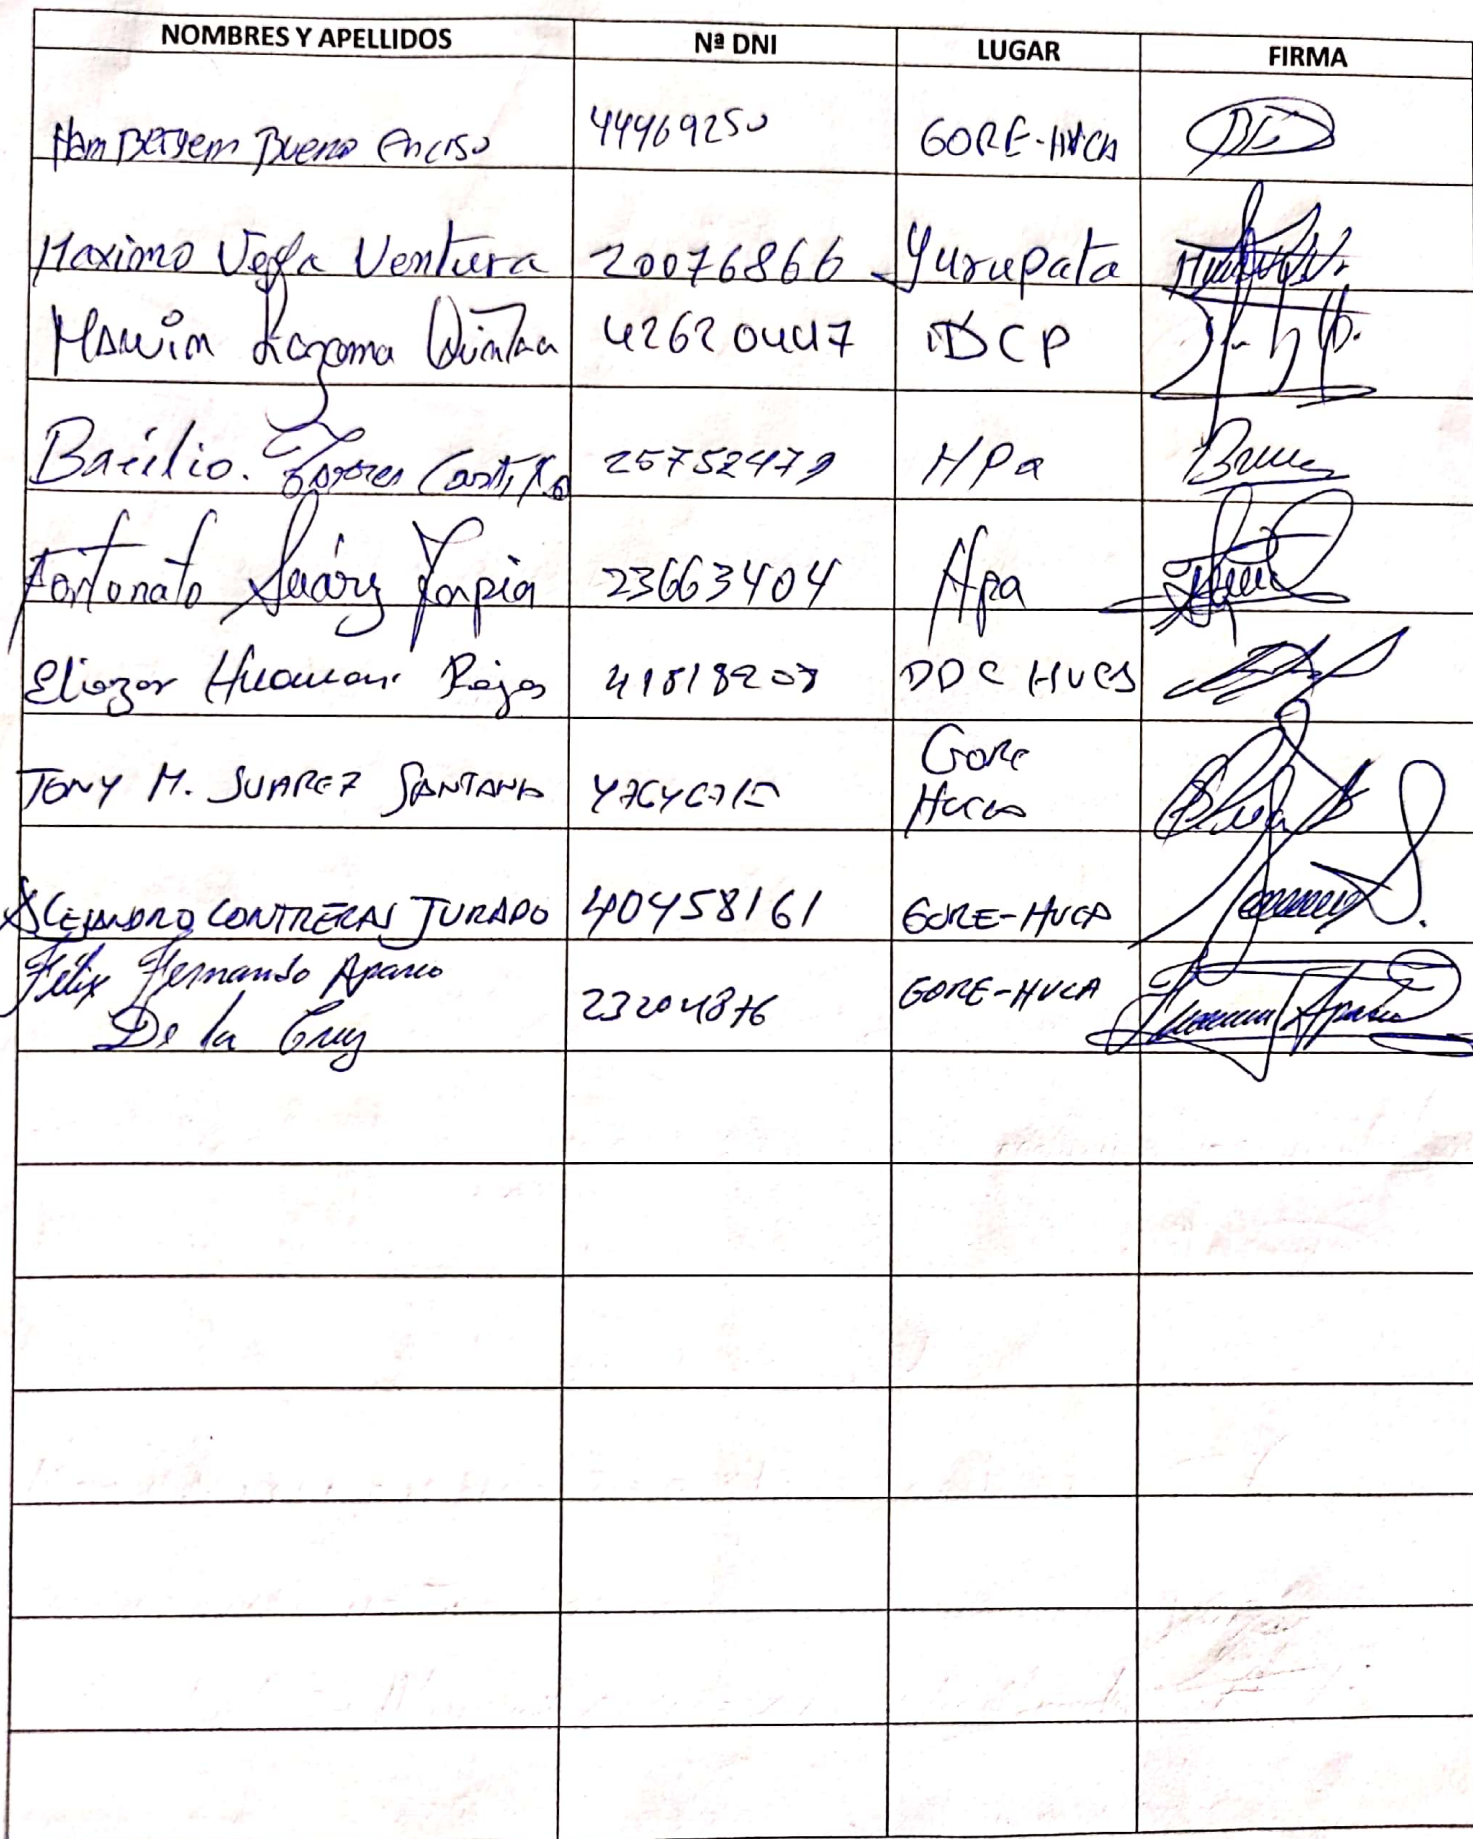 NOMBRES Y APELLIDOS Nª DNI LUGAR FIRMA
Bueno Enciso 44469250 GORE-HVCA
Maximo Vega Ventura 20076866 Yurupata
Marvin Lazoma Quintana 42620447 DCP
Basilio. Castillo 25752479 HPa
Fortonato Suárez Tapia 23663404 Hpa
Eliazar Huamani Rojas 41818208 DDC HVCA
TONY M. SUAREZ SANTANA Gore
Hvca
ALEJANDRO CONTRERAS JURADO 40458161 GORE-HVCA
Félix Fernando Aparco
De la Cruz 23204876 GORE-HVCA